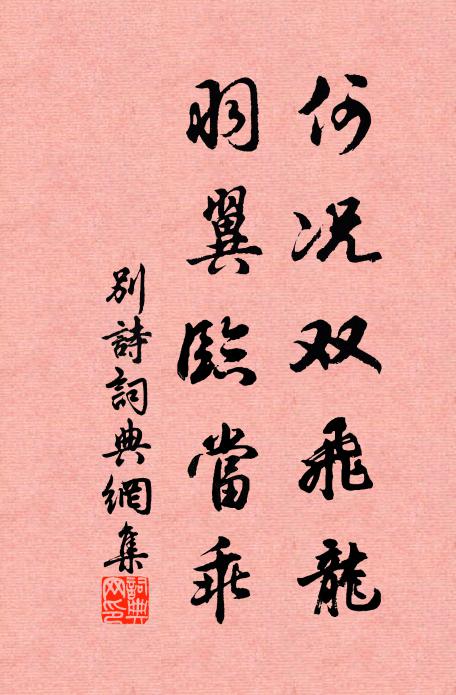 何况双飛龍
羽翼臨當乖
别詩詞典網集
詞典网印